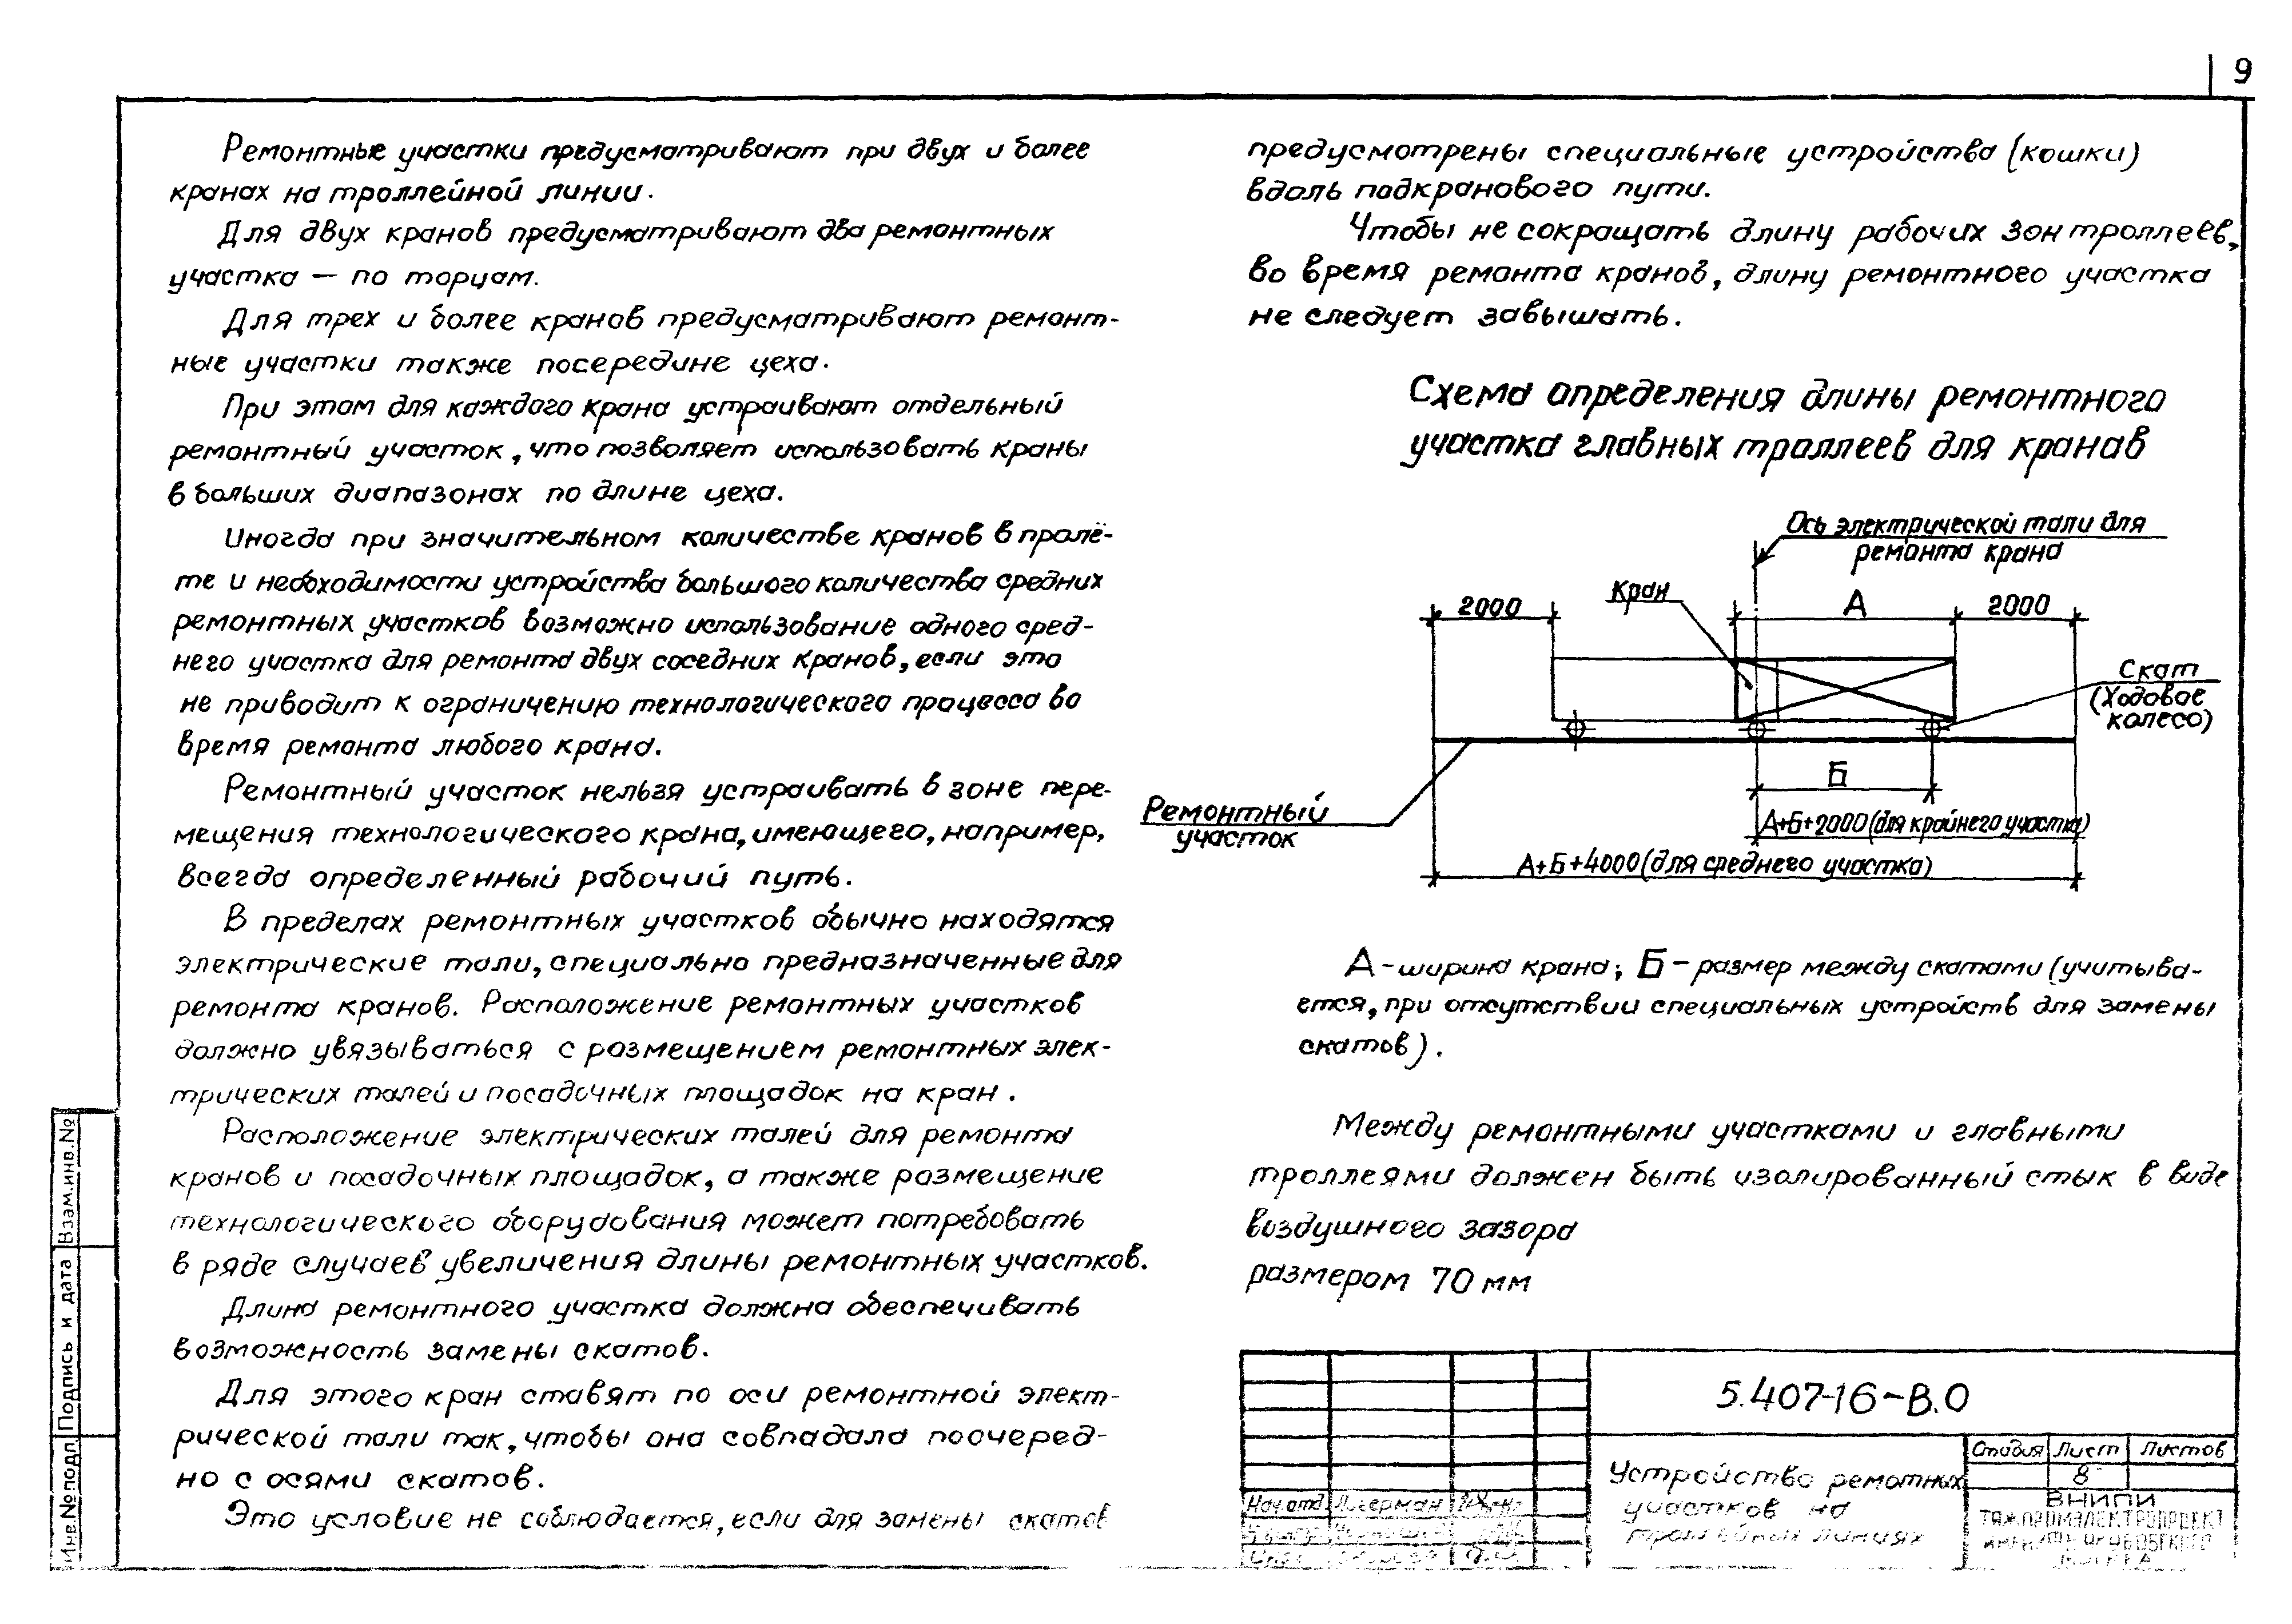 9
Ремонтные участки предусматривают при двух и более
кранах на троллейной линии.
Для двух кранов предусматривают два ремонтных
участка — по торцам.
Для трех и более кранов предусматривают ремонт-
ные участки также посередине цеха.
При этом для каждого крана устраивают отдельный
ремонтный участок, что позволяет использовать краны
в больших диапазонах по длине цеха.
Иногда при значительном количестве кранов в пролё-
те и необходимости устройства большого количества средних
ремонтных участков возможно использование одного сред-
него участка для ремонта двух соседних кранов, если это
не приводит к ограничению технологического процесса во
время ремонта любого крана.
Ремонтный участок нельзя устраивать в зоне пере-
мещения технологического крана, имеющего, например,
всегда определенный рабочий путь.
В пределах ремонтных участков обычно находятся
электрические тали, специально предназначенные для
ремонта кранов. Расположение ремонтных участков
должно увязываться с размещением ремонтных элек-
трических талей и посадочных площадок на кран.
Расположение электрических талей для ремонта
кранов и посадочных площадок, а также размещение
технологического оборудования может потребовать
в ряде случаев увеличения длины ремонтных участков.
Длина ремонтного участка должна обеспечивать
возможность замены скатов.
Для этого кран ставят по оси ремонтной элект-
рической тали так, чтобы она совпадала поочеред-
но с осями скатов.
Это условие не соблюдается, если для замены скатов
предусмотрены специальные устройства (кошки)
вдоль подкранового пути.
Чтобы не сокращать длину рабочих зон троллеев,
во время ремонта кранов, длину ремонтного участка
не следует завышать.
Схема определения длины ремонтного
участка главных троллеев для кранов
Ось электрической тали для
ремонта крана
Кран
2000
А
2000
Скат
(Ходовое
колесо)
Б
Ремонтный
участок
А+Б+2000 (для крайнего участка)
А+Б+4000 (для среднего участка)
А - ширина крана; Б - размер между скатами (учитыва-
ется, при отсутствии специальных устройств для замены
скатов).
Между ремонтными участками и главными
троллеями должен быть изолированный стык в виде
воздушного зазора
размером 70 мм
5.407-16-В.0
Устройство ремотных
участков на
троллейных линиях
Стадия Лист Листов
8
ВНИПИ
ТЯЖПРОМЭЛЕКТРОПРОЕКТ
МОСКВА
Нач.отд. Лигерман
Взам.инв.№
Подпись и дата
Инв.№подл.